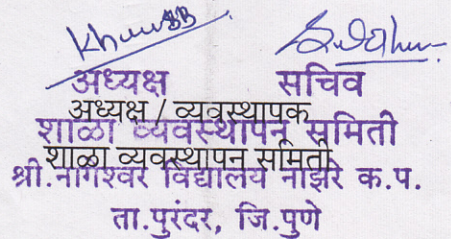 अध्यक्ष सचिव
अध्यक्ष / व्यवस्थापक
शाळा व्यवस्थापन समिती
शाळा व्यवस्थापन समिती
श्री.नागेश्वर विद्यालय नाझरे क.प.
ता.पुरंदर, जि.पुणे